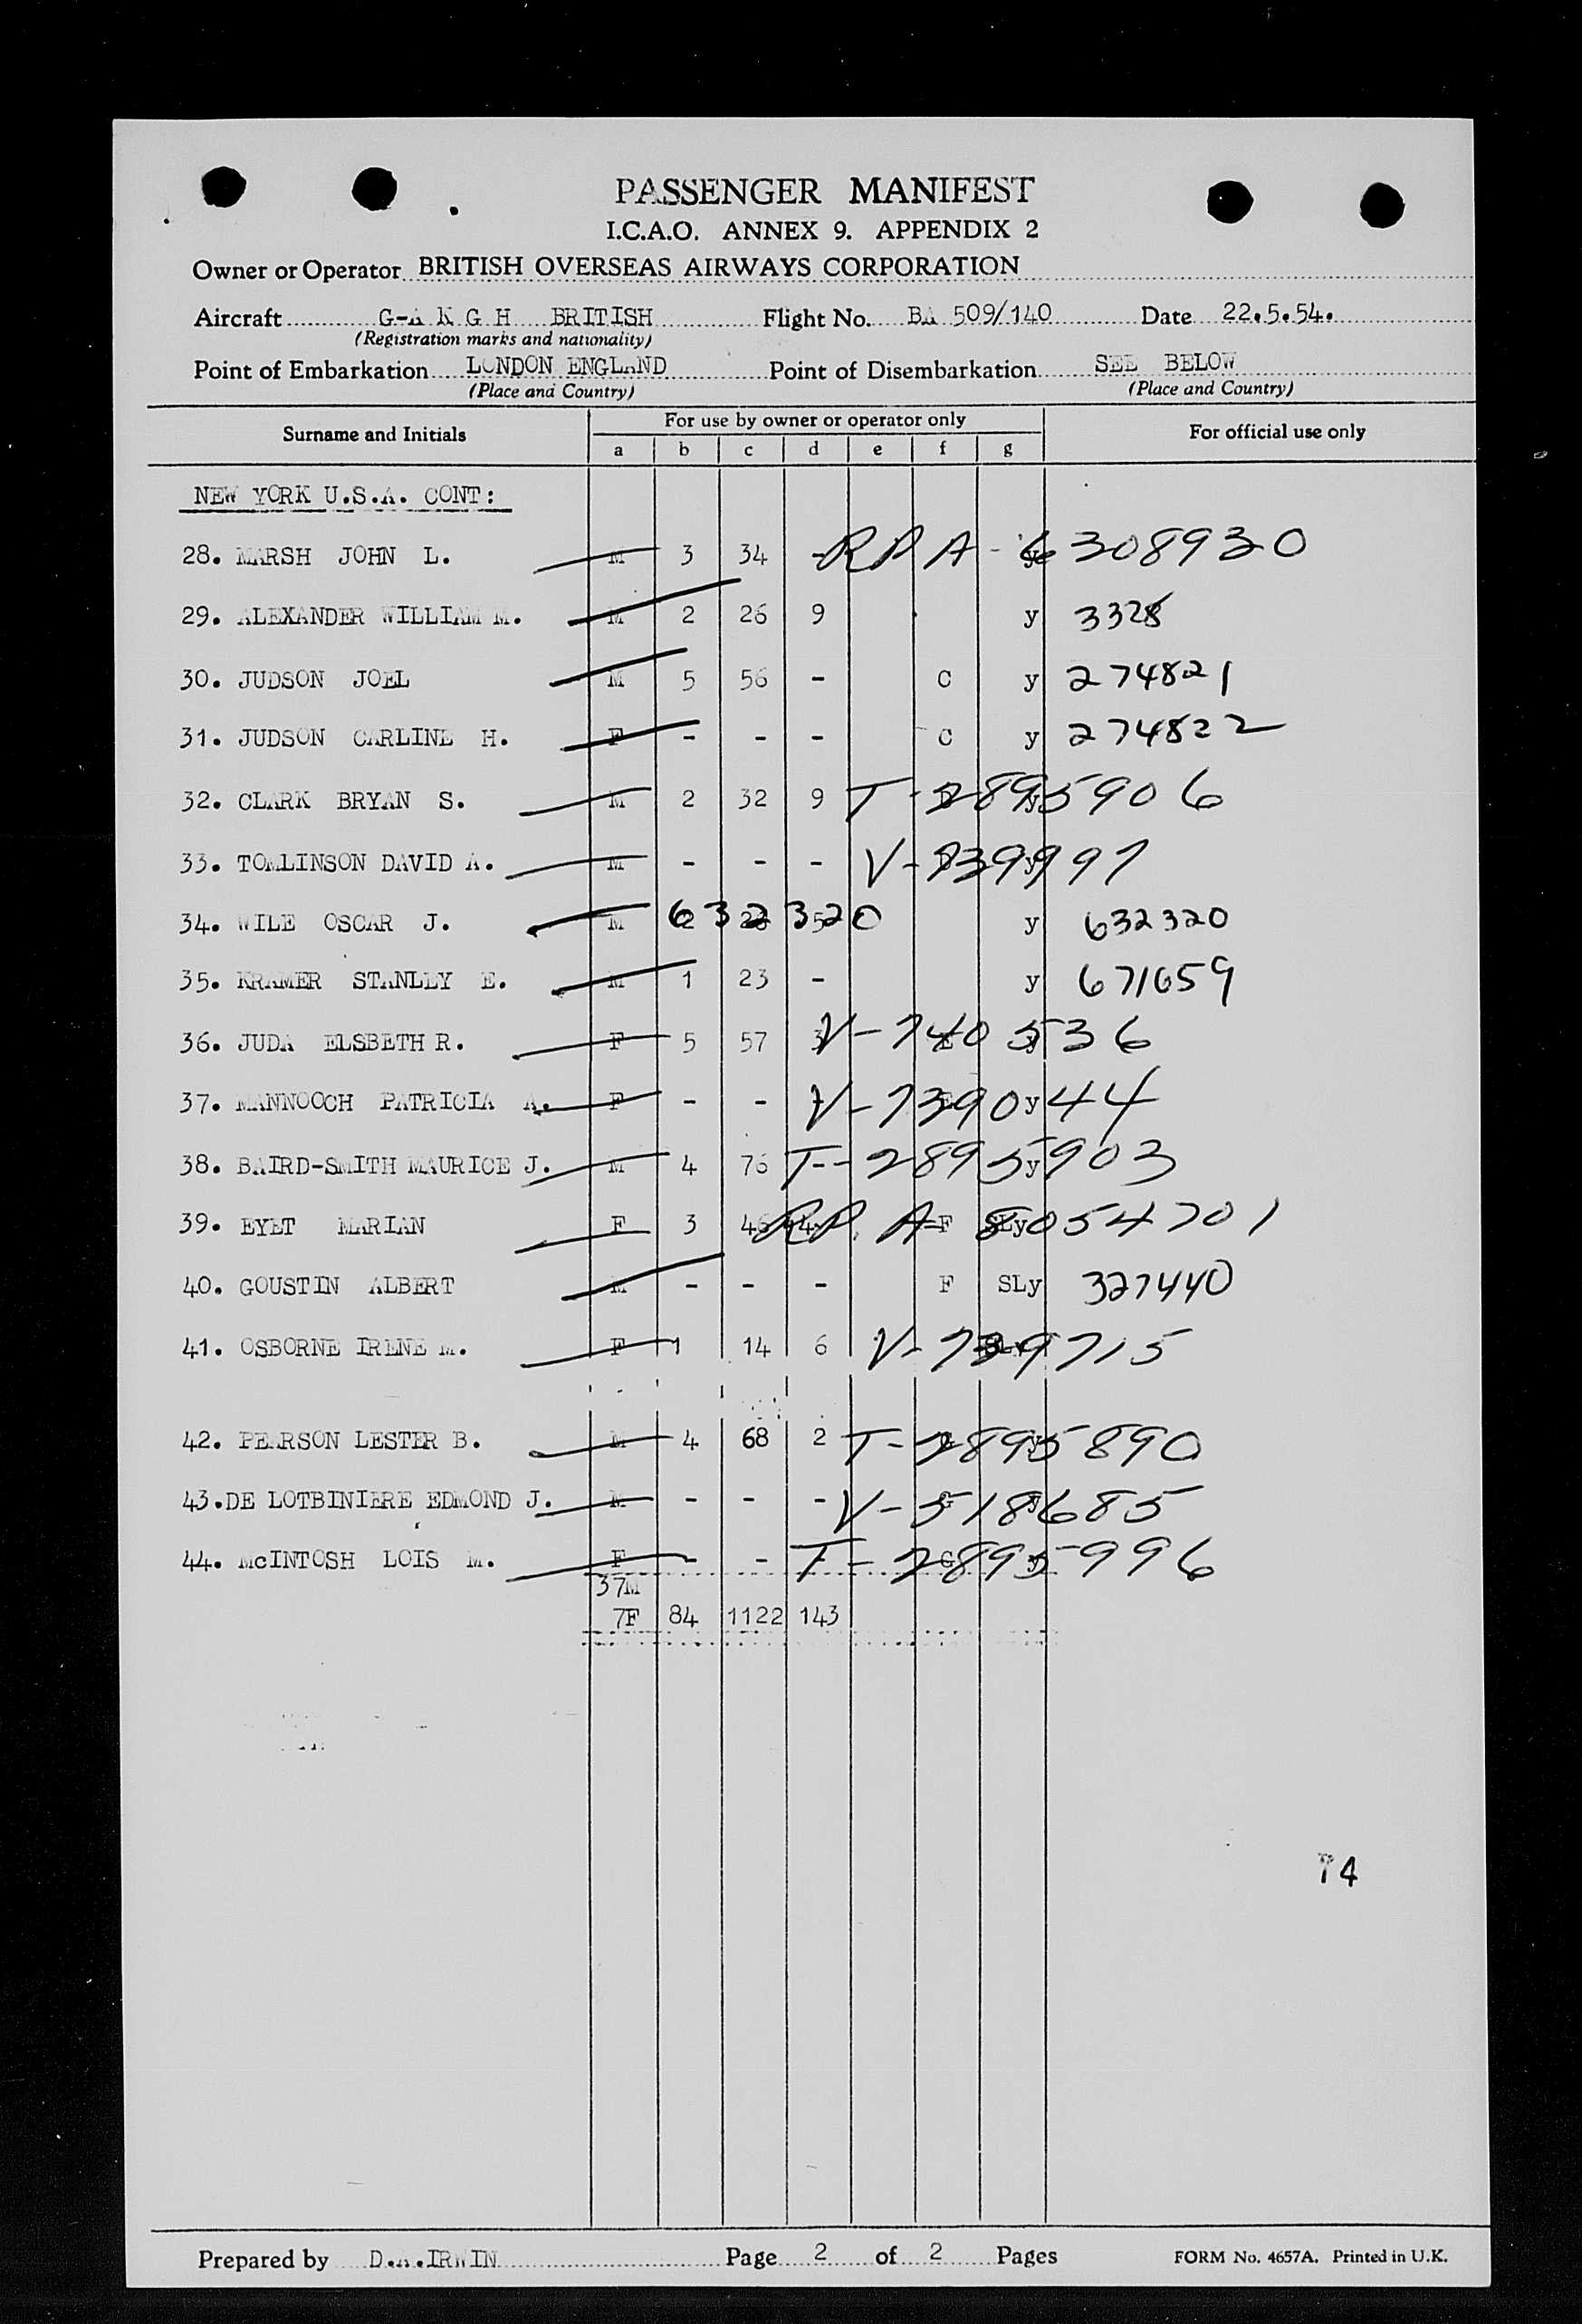 PASSENGER MANIFEST
I.C.A.O. ANNEX 9. APPENDIX 2
Owner or Operator BRITISH OVERSEAS AIRWAYS CORPORATION
Aircraft G-A K G H BRITISH Flight No. BA 509/140 Date 22.5.54.
(Registration marks and nationality)
Point of Embarkation LONDON ENGLAND Point of Disembarkation SEE BELOW
(Place and Country) (Place and Country)
Surname and Initials For use by owner or operator only For official use only
a b c d e f g
NEW YORK U.S.A. CONT:
28. MARSH JOHN L. M 3 34 - RPA - 6308930
29. ALEXANDER WILLIAM M. M 2 26 9 y 3328
30. JUDSON JOEL M 5 56 - C y 274821
31. JUDSON CARLINE H. F - - - C y 274822
32. CLARK BRYAN S. M 2 32 9 T-2895906
33. TOMLINSON DAVID A. M - - - V-739997
34. WILE OSCAR J. M 632320 y 632320
35. KRAMER STANLEY E. M 1 23 - y 671659
36. JUDA ELSBETH R. F 5 57 3 V-740536
37. MANNOOCH PATRICIA A. F - - V-739044 y
38. BAIRD-SMITH MAURICE J. M 4 76 T-2895903 y
39. EYET MARIAN F 3 46 4 RP. A- F SLy 8054701
40. GOUSTIN ALBERT M - - - F SLy 327440
41. OSBORNE IRENE M. F 1 14 6 V-739715
42. PEARSON LESTER B. M 4 68 2 T-2895890
43. DE LOTBINIERE EDMOND J. M - - - V-518685
44. McINTOSH LOIS M. F - - T-2895996
37M
7F 84 1122 143
74
Prepared by D.A.IRWIN Page 2 of 2 Pages FORM No. 4657A. Printed in U.K.